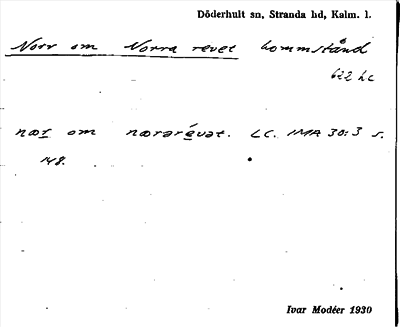 Döderhult sn, Stranda hd, Kalm. l.
Norr om Norra revet kommstånd
622 LC
nær om nærarévət. LC. IMA 30:3 s.
148.
Ivar Modéer 1930